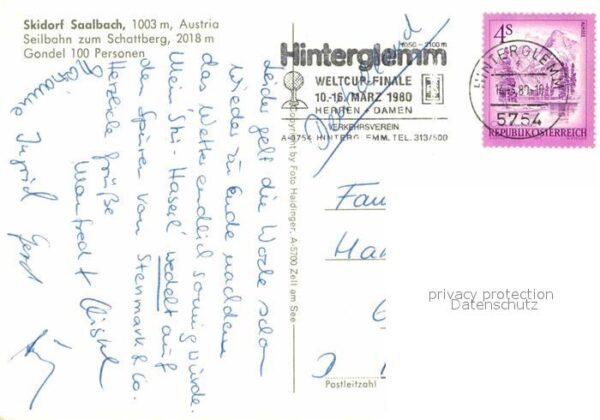 Skidorf Saalbach, 1003 m, Austria
Seilbahn zum Schattberg, 2018 m
Gondel 100 Personen
Leider geht die Woche schon
wieder zu Ende nachdem
das Wetter endlich sonnig wurde.
Mei "Ski-Haserl" wedelt auf
den Spuren von Stenmark & Co.
Herzliche Grüße
Manfred +
Ingrid Gerd
Copyright by Foto Haidinger, A-5700 Zell am See
1050 - 2100 m
Hinterglemm
WELTCUP-FINALE
10.-16. MÄRZ 1980
HERREN + DAMEN
VERKEHRSVEREIN
A-5754 HINTERGLEMM, TEL. 313/500
HINTERGLEMM
5754
4S
REPUBLIK ÖSTERREICH
Fam
Han
D
Postleitzahl
privacy protection
Datenschutz